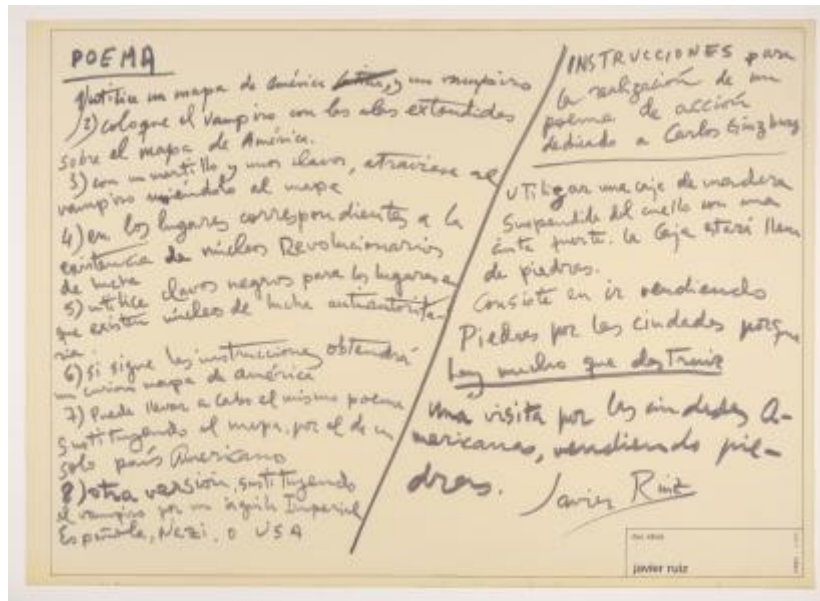 POEMA
1) utilice un mapa de América latina, y un vampiro
2) coloque el vampiro con las alas extendidas
sobre el mapa de América.
3) con un martillo y unos clavos, atraviese al
vampiro uniéndolo al mapa
4) en los lugares correspondientes a la
existencia de núcleos Revolucionarios
de lucha
5) utilice clavos negros para los lugares en
que existen núcleos de lucha antiautorita-
ria.
6) si sigue las instrucciones obtendrá
un curioso mapa de américa
7) Puede llevar a cabo el mismo poema
sustituyendo el mapa, por el de un
solo país Americano
8) otra versión, sustituyendo
el vampiro por un águila Imperial
Española, Nazi, o USA
INSTRUCCIONES para
la realización de un
poema de acción
dedicado a Carlos Ginzburg
Utilizar una caja de madera
suspendida del cuello con una
cinta fuerte. la caja estará llena
de piedras.
Consiste en ir vendiendo
Piedras por las ciudades porque
hay mucho que destruir
una visita por las ciudades A-
mericanas, vendiendo pie-
dras.
Javier Ruiz
javier ruiz